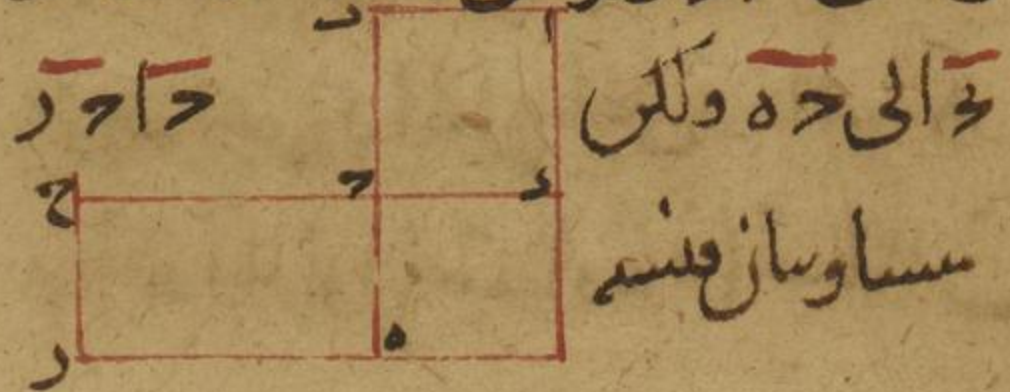 ب ا
بح الى حه ولكن حا حر
ح ح د
متساويان فنسبة
ر ه